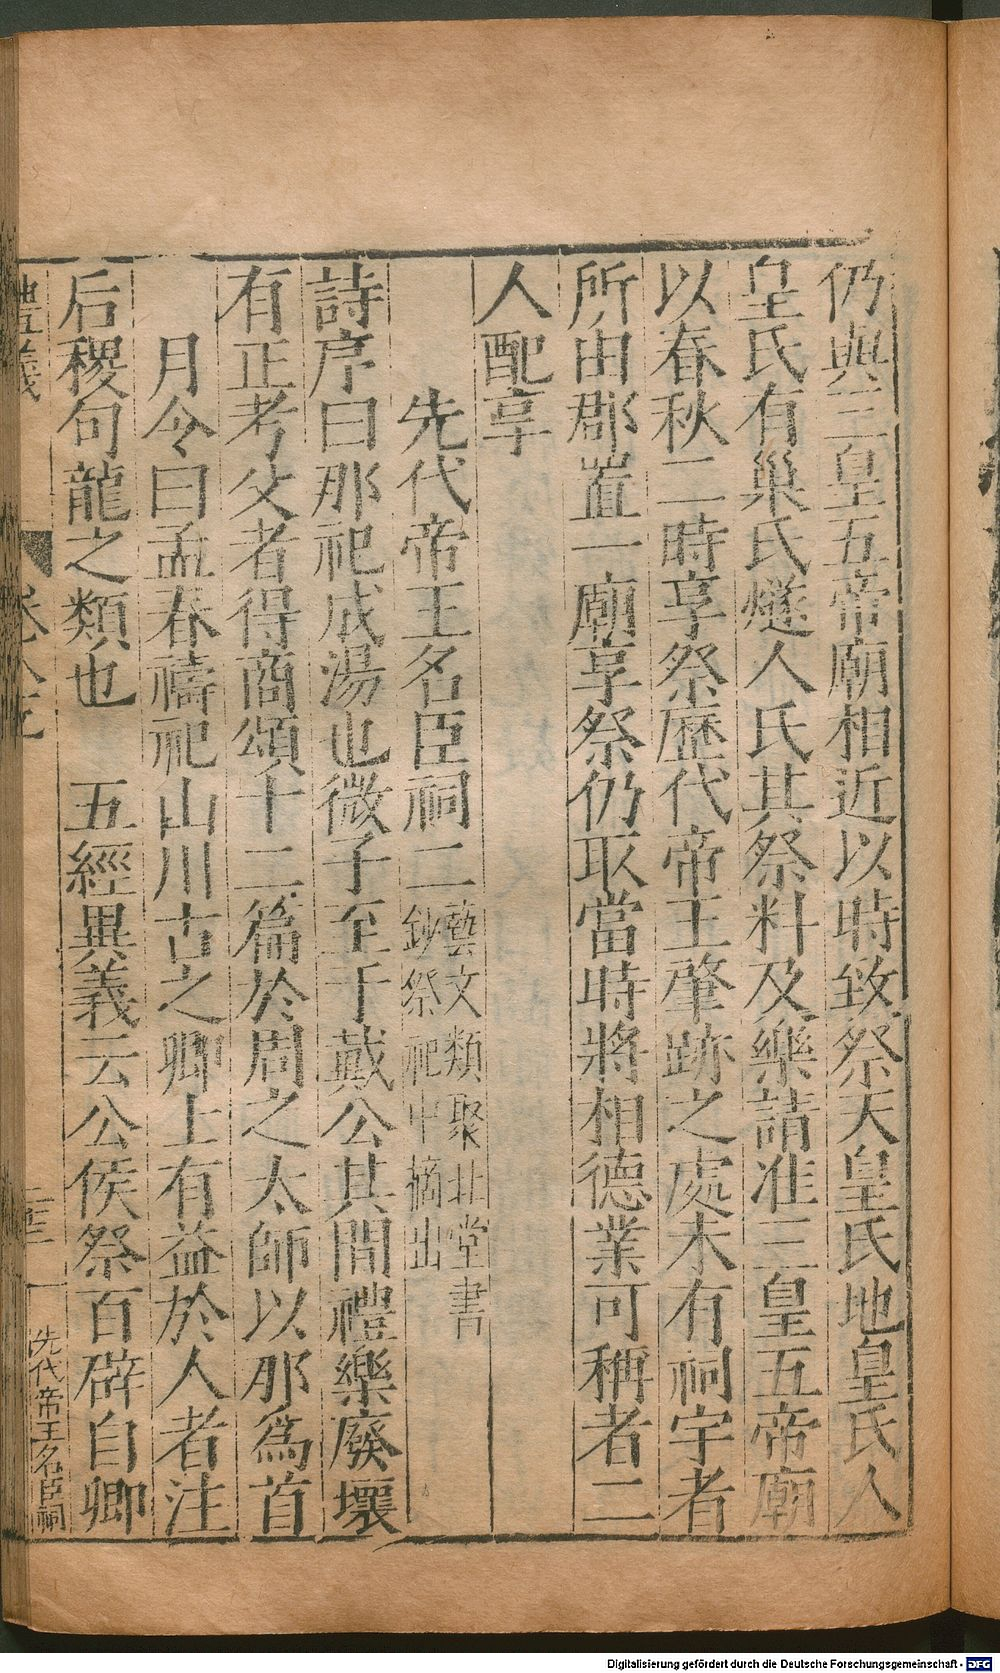 仍與三皇五帝廟相近以時致祭天皇氏地皇氏人
皇氏有巢氏燧人氏其祭料及樂請准三皇五帝廟
以春秋二時享祭歷代帝王肇跡之處未有祠宇者
所由郡置一廟享祭仍取當時將相德業可稱者二
人配享
先代帝王名臣祠二藝文類聚北堂書
鈔祭祀中摘出
詩序曰那祀成湯也微子至于戴公其間禮樂廢壞
有正考父者得商頌十二篇於周之太師以那爲首
月令曰孟春禱祀山川古之卿士有益於人者注
后稷句龍之類也 五經異義云公侯祭百辟自卿
先代帝王名臣祠
Digitalisierung gefördert durch die Deutsche Forschungsgemeinschaft - DFG